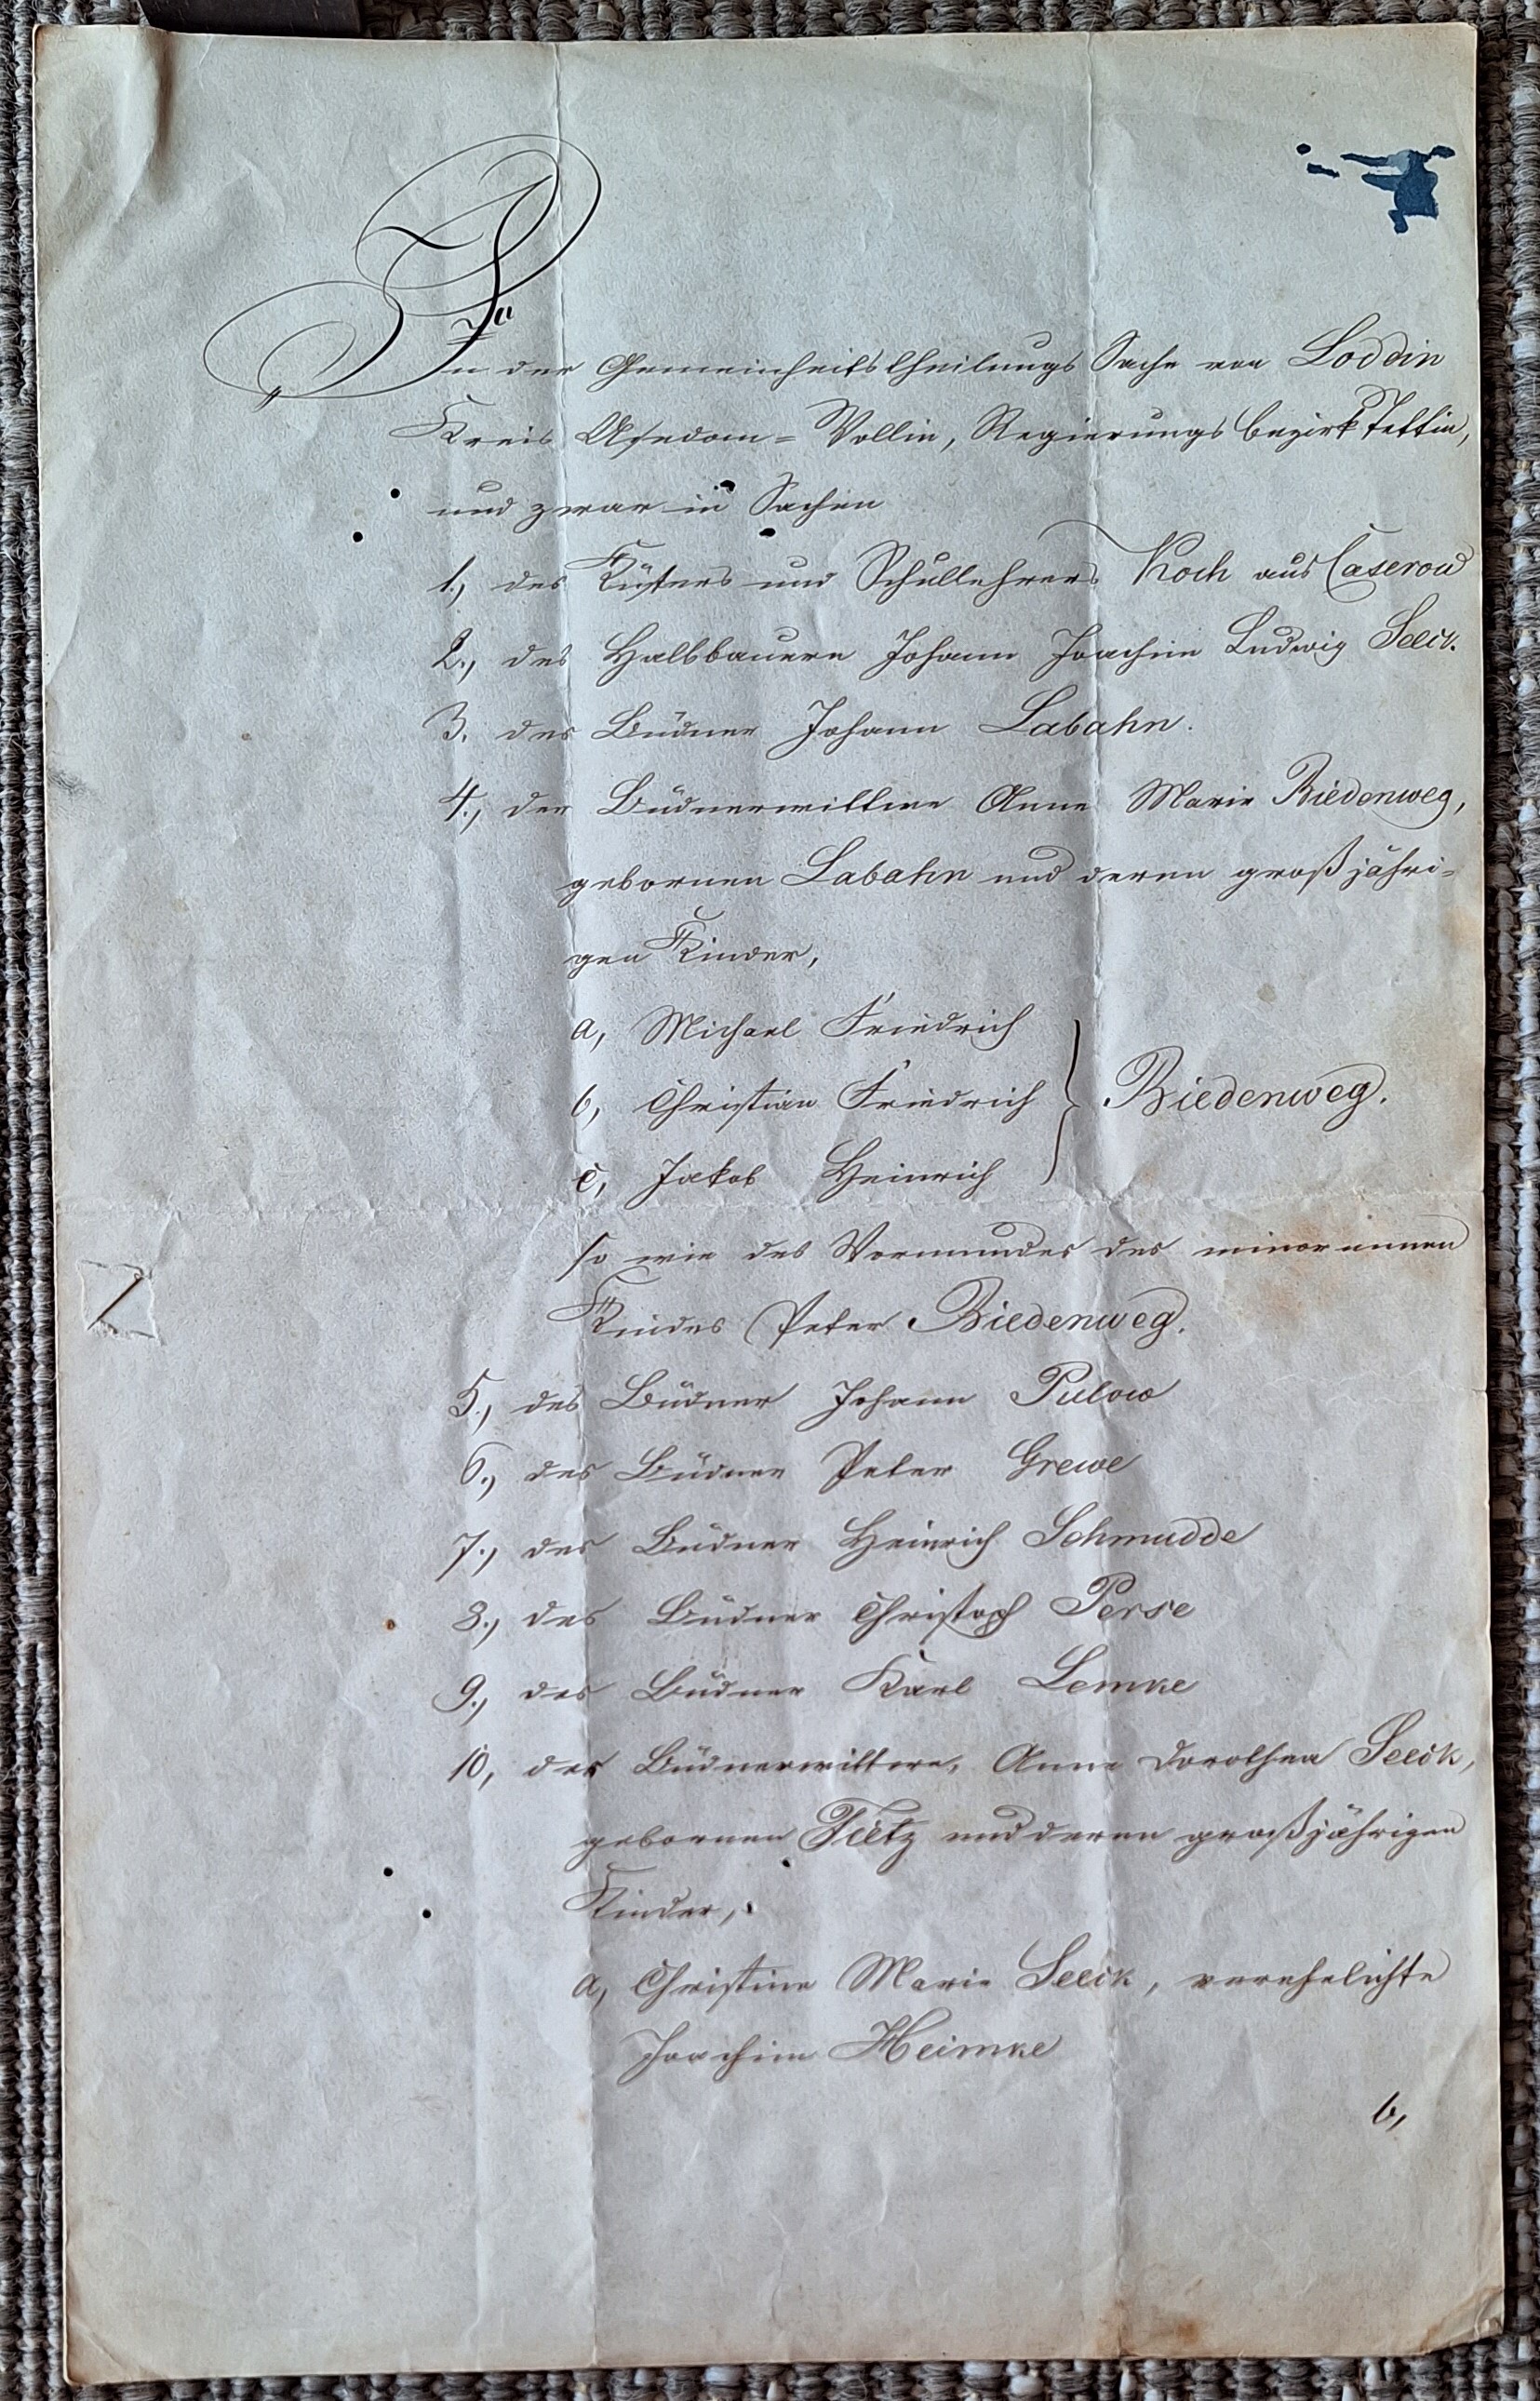 In der Gemeinheitstheilungs Sache von Loddin
Kreis Usedom= Wollin, Regierungs bezirk Stettin,
und zwar in Sachen
1., des Küsters und Schullehrers Koch aus Caserow
2., des Halbbauern Johann Joachim Ludwig Seeck.
3. des Büdner Johann Labahn.
4., der Büdnerwittwe Anne Marie Biedenweg,
gebornen Labahn und deren großjähri=
gen Kinder,
a, Michael Friedrich
b, Christian Friedrich } Biedenweg.
c, Jakob Heinrich
so wie des Vormundes des minorennen
Kindes Peter Biedenweg.
5., des Büdner Johann Pulow
6., des Büdner Peter Grewe
7., des Büdner Heinrich Schmudde
8., des Büdner Christoph Perse
9., des Büdner Karl Lemke
10, der Büdnerwittwe, Anne Dorothea Seeck,
gebornen Tietz und deren großjährigen
Kinder,
a, Christine Marie Seeck, verehelichte
Joachim Heimke
b,